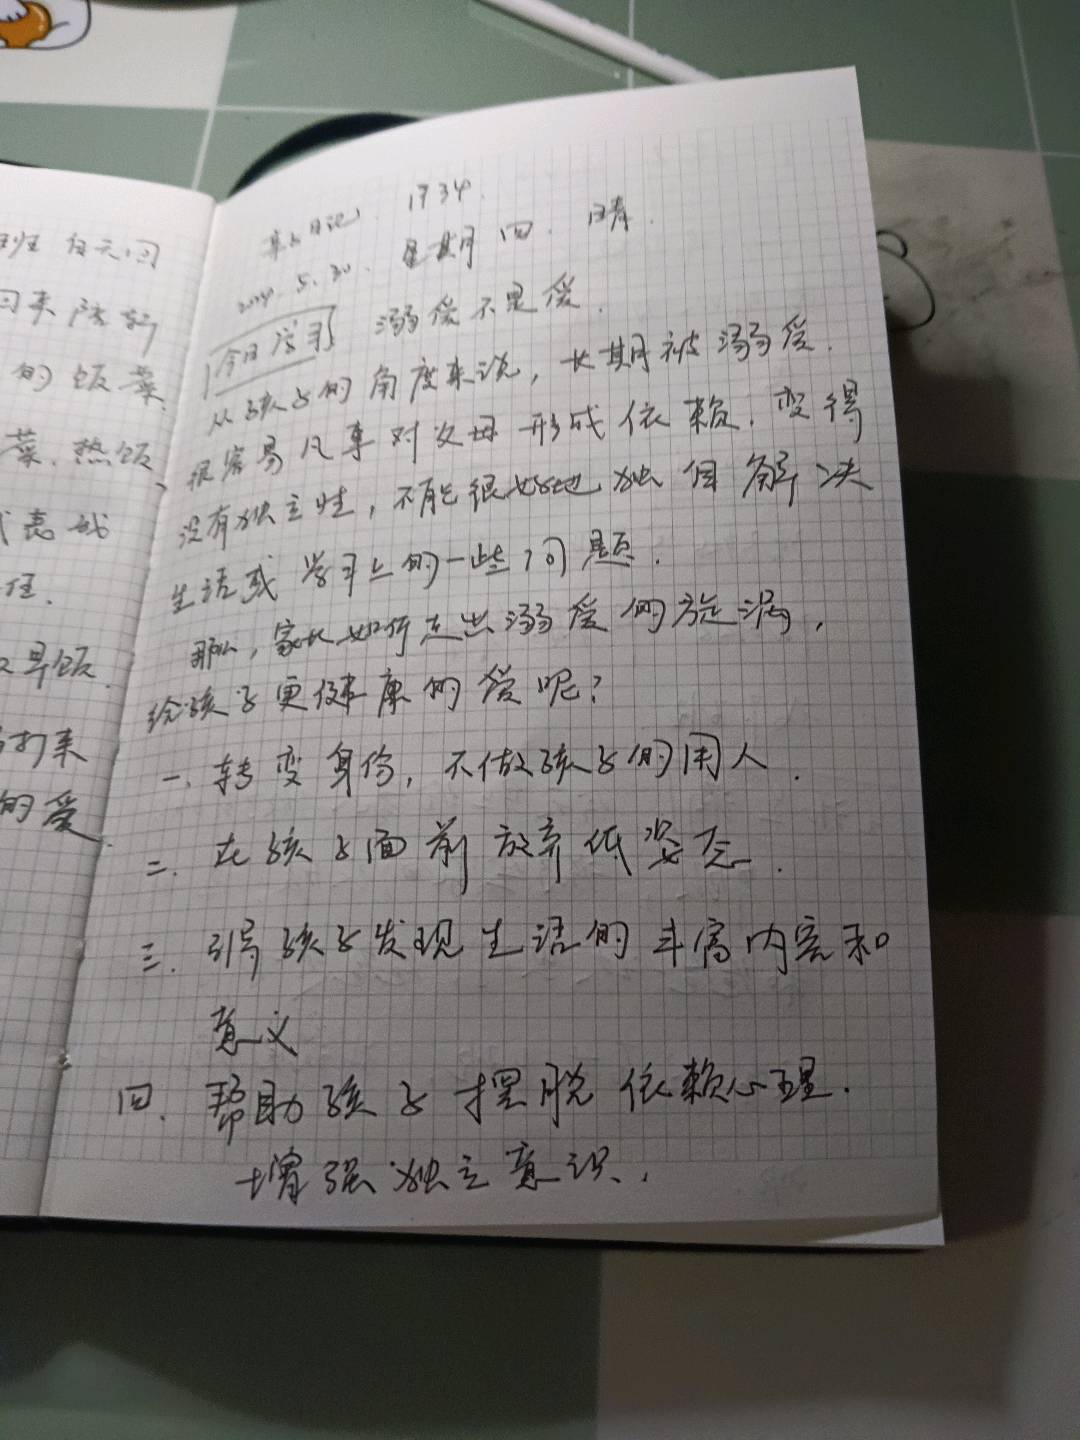 班 每天回
回来 陪
的饭菜
菜.热饭、
我
任.
早饭.
打来
的爱.
日记 1734.
5.30. 星期四. 晴.
今日学习 溺爱不是爱.
从孩子的角度来说,长期被溺爱.
很容易凡事对父母形成依赖.变得
没有独立性,不能很好地独自解决
生活或学习上的一些问题.
那么,家长如何走出溺爱的旋涡,
给孩子更健康的爱呢?
一.转变身份,不做孩子的用人.
二.在孩子面前放弃低姿态.
三.引导孩子发现生活的丰富内容和
意义
四.帮助孩子摆脱依赖心理.
增强独立意识.